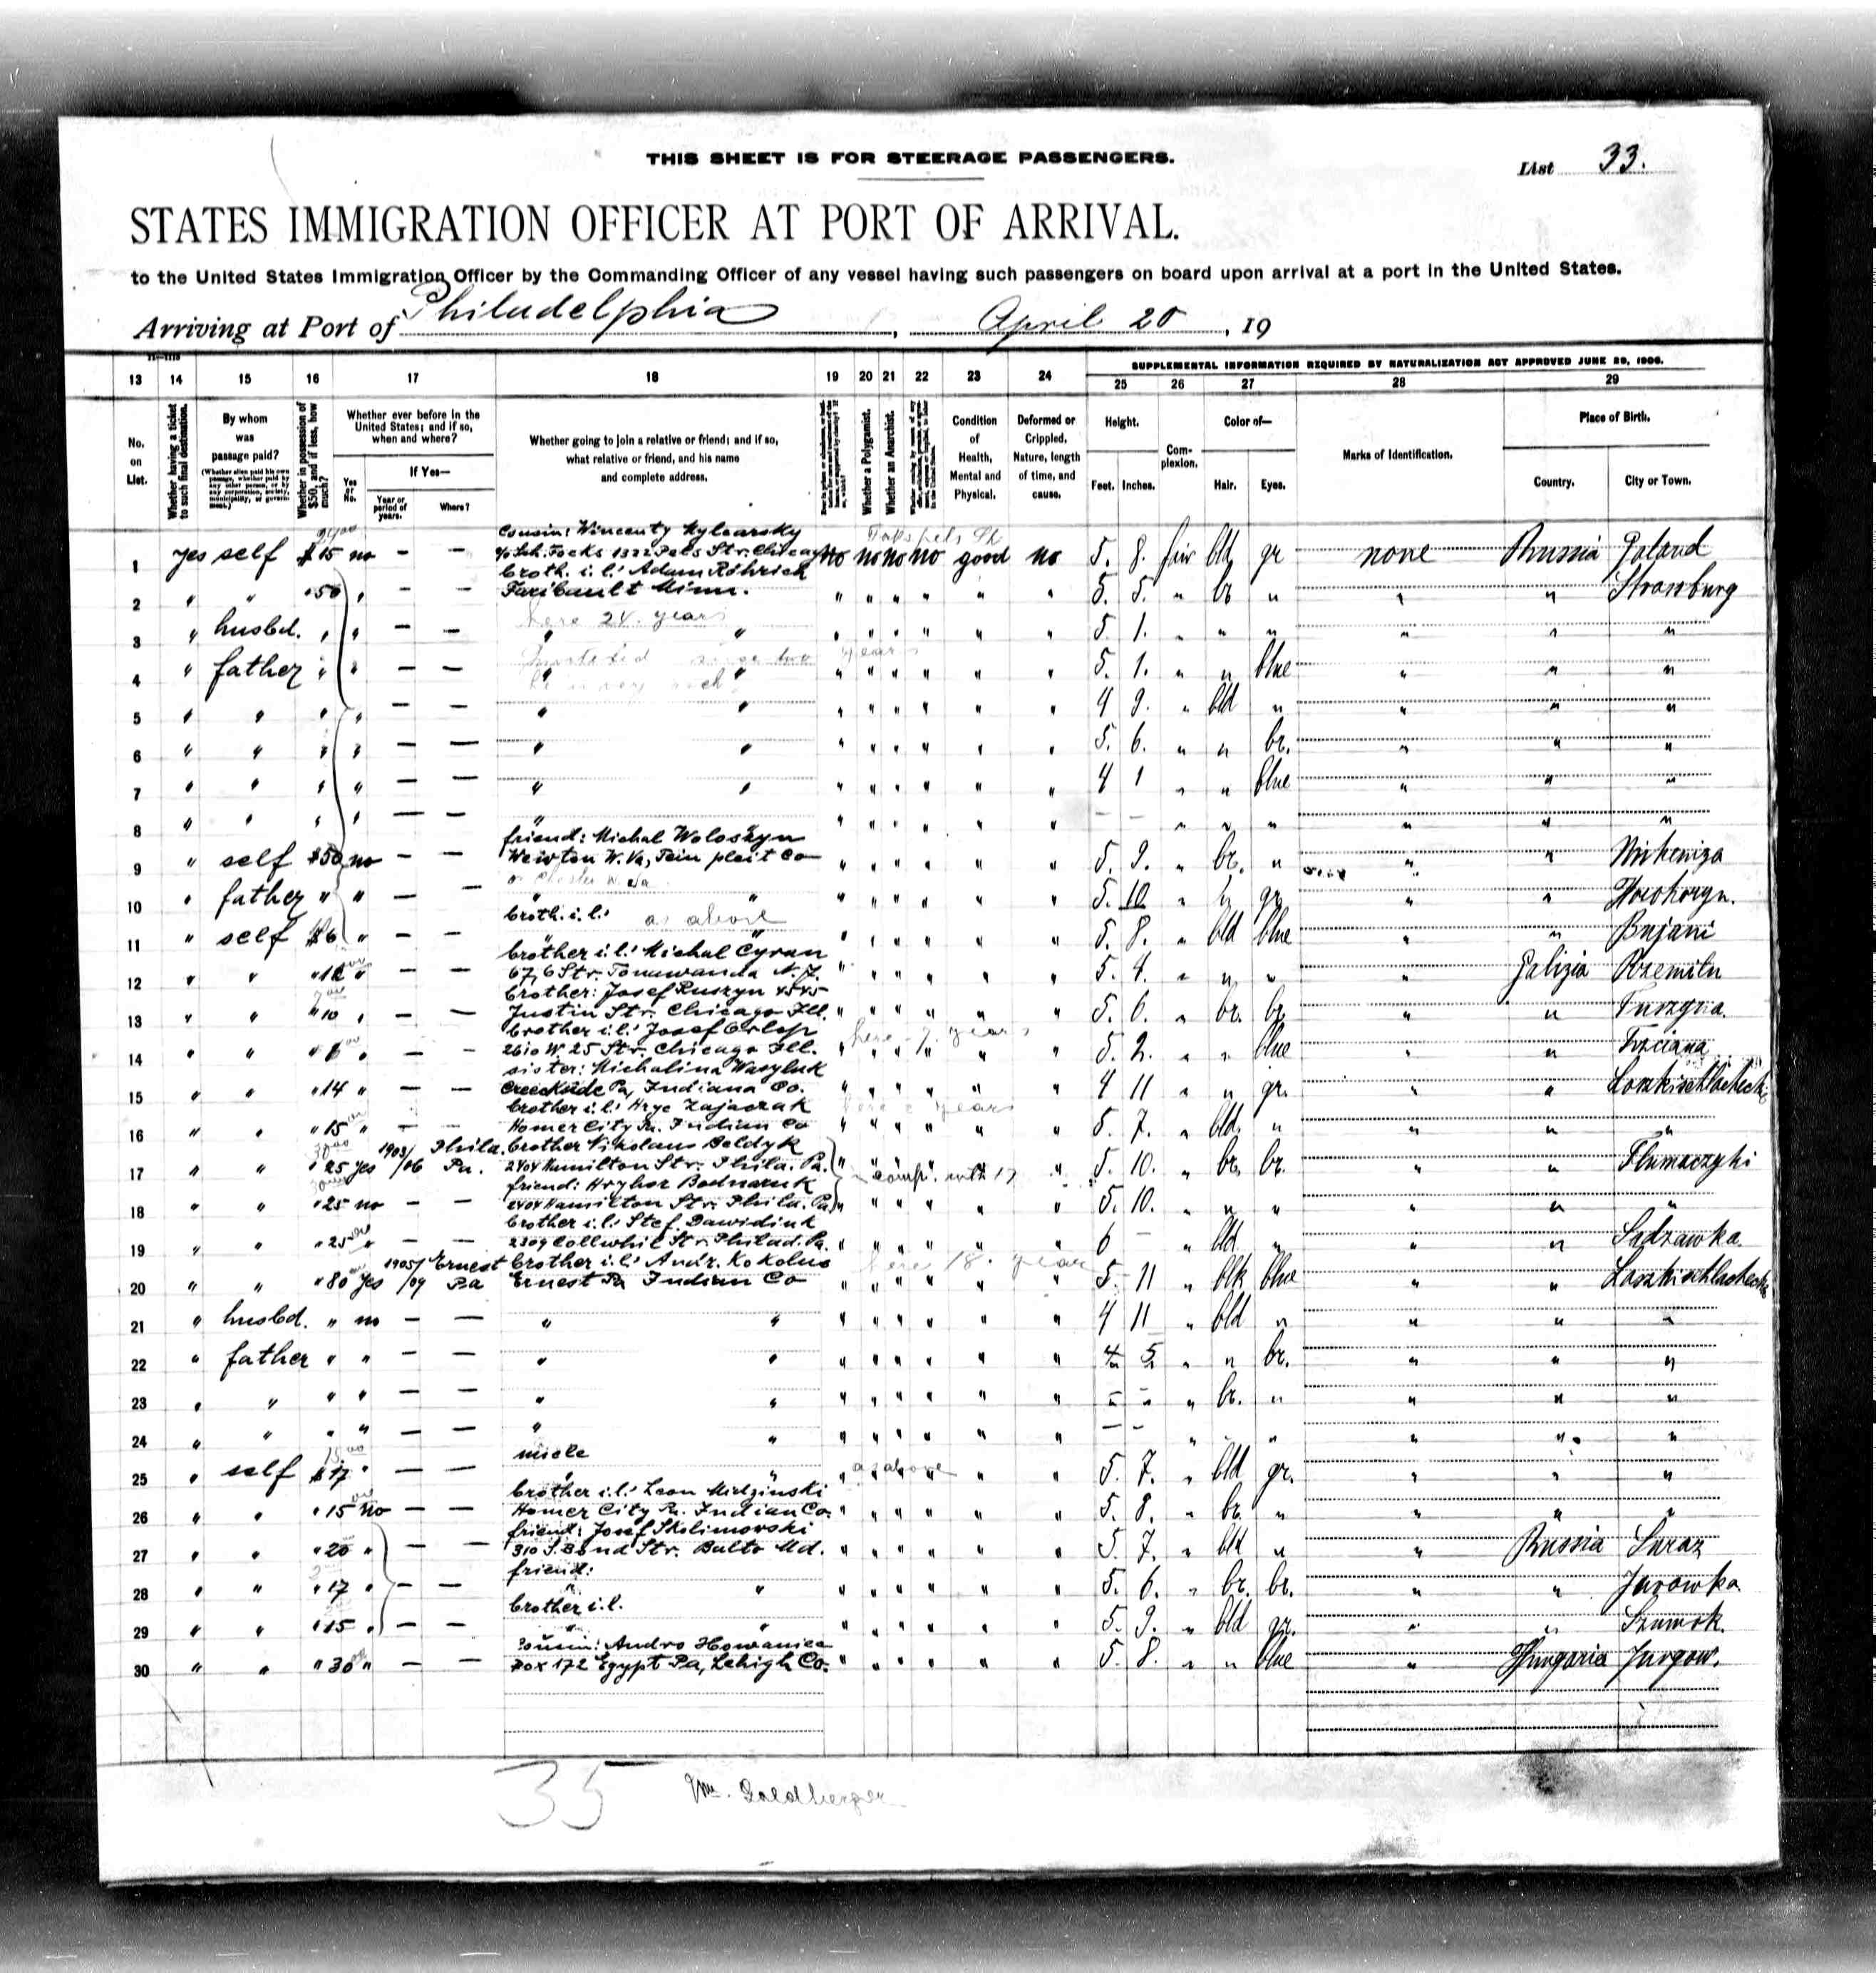 THIS SHEET IS FOR STEERAGE PASSENGERS.
List 33.
STATES IMMIGRATION OFFICER AT PORT OF ARRIVAL.
to the United States Immigration Officer by the Commanding Officer of any vessel having such passengers on board upon arrival at a port in the United States.
Arriving at Port of Philadelphia, April 20, 19
SUPPLEMENTAL INFORMATION REQUIRED BY NATURALIZATION ACT APPROVED JUNE 29, 1906.
13 14 15 16 17 18 19 20 21 22 23 24 25 26 27 28 29
No. on List.
Whether having a ticket to such final destination.
By whom was passage paid?
(Whether alien paid his own passage, whether paid by any other person, or by any corporation, society, municipality, or government.)
Whether in possession of $50, and if less, how much?
Whether ever before in the United States; and if so, when and where?
Yes or No.
If Yes—
Year or period of years.
Where?
Whether going to join a relative or friend; and if so, what relative or friend, and his name and complete address.
Whether a Polygamist.
Whether an Anarchist.
Condition of Health, Mental and Physical.
Deformed or Crippled. Nature, length of time, and cause.
Height.
Feet. Inches.
Complexion.
Color of—
Hair. Eyes.
Marks of Identification.
Place of Birth.
Country. City or Town.
cousin: Wincenty
1 yes self $15 no — — Chicago no no no no good no 5. 8. fair bld gr none Russia Poland
broth. i. l.: Adam Röhrich
2 " " " 50 " — — Faribault Minn. " " " " " " 5. 5. " br " " " Strassburg
here 24 years
3 " husbd. " " — — " " " " " " " " 5. 1. " " " " " "
4 " father " " — — " " " " " " " " 5. 1. " " blue " " "
5 " " " " — — " " " " " " " " 4 9. " bld " " " "
6 " " " " — — " " " " " " " " 5. 6. " " br. " " "
7 " " " " — — " " " " " " " " 4 1 " " blue " " "
8 " " " " — — " " " " " " " — — " " " " " "
friend: Michal Woloszyn
9 " self $50 no — — W. Va, " " " " " " 5. 9. " br. " " "
10 " father " " — — " " " " " " " " 5. 10 " br gr " "
broth. i. l.: as above
11 " self $6 " — — " " " " " " " " 5. 8. " bld blue " " Bujani
brother i. l.: Michal Cyran
12 " " " 12 " — — 67, 6 Str. Tonawanda N. Y. " " " " " " 5. 4. " " " " Galizia
brother: Josef Ruszyn 4545
13 " " " 10 " — — Justin Str. Chicago Ill. " " " " " " 5. 6. " br. br. " "
brother i. l.: Josef Orlop
here 7 years
14 " " " 6 " — — 2610 W. 25 Str. Chicago Ill. " " " " " " 5. 2. " " blue " " Trciana
sister: Michalina Wasyluk
15 " " " 14 " — — Pa, Indiana Co. " " " " " " 4 11 " " gr. " "
brother i. l.: Hryc Zajaczak
years
16 " " " 15 " — — Homer City Pa. Indian Co " " " " " " 5. 7. " bld. " " " "
brother Nikolaus Boldyk
17 " " " 25 yes 1903/06 Phila. Pa. 2404 Hamilton Str. Phila. Pa. " " " " " " 5. 10. " br. br. " "
friend: Hryhor Bodnaruk
comp. with 17
18 " " " 25 no — — 2404 Hamilton Str. Phila. Pa " " " " " 5. 10. " " " " "
brother i. l.: Stef. Dawidiuk
19 " " " 25 " — — 2309 Str. Philad. Pa. " " " " " " 6 — " bld " " " Sadzawka.
brother i. l.: Andr. Kokolus
here 18. year
20 " " " 80 yes 1905/09 Ernest Pa Ernest Pa Indian Co " " " " " " 5. 11 " blk blue " "
21 " husbd. " no — — " " " " " " " " 4 11 " bld " " " "
22 " father " " — — " " " " " " " " 4 5 " " br. " " "
23 " " " " — — " " " " " " " " — — " br. " " " "
24 " " " " — — " " " " " " " " — — " " " " " "
uncle
as above
25 " self $17 " — — " " " " " " " " 5. 7. " bld gr. " " "
brother i. l.: Leon Midzinski
26 " " " 15 no — — Homer City Pa. Indian Co. " " " " " " 5. 8. " br. " " " "
friend: Josef Skolimowski
27 " " " 20 " — — 310 S. Bond Str. Balto Md. " " " " " " 5. 7. " bld " " Russia Suraz
friend:
28 " " " 17 " — — " " " " " " " " 5. 6. " br. br. " " Jurowka
brother i. l.
29 " " " 15 " — — " " " " " " " " 5. 9. " bld gr. " "
cousin: Andro Howaniec
30 " " " 30 " — — Box 172 Egypt Pa, Lehigh Co. " " " " " " 5. 8. " " blue " Hungaria Jurgow.
35 Wm. Goldberger